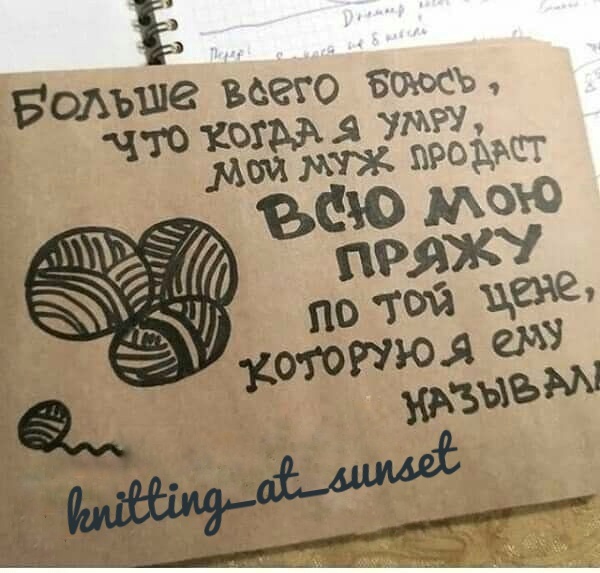 Больше всего боюсь,
что когда я умру,
мой муж продаст
всю мою
пряжу
по той цене,
которую я ему
называла
knitting_at_sunset